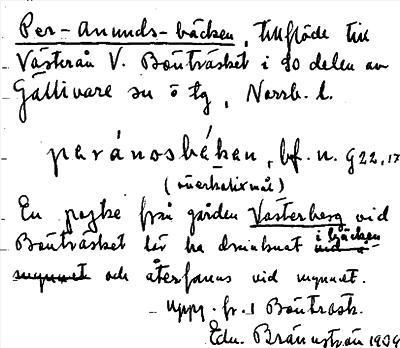 Per-Anunds-bäcken, tillflöde till
Västerån V. Bönträsket i SO delen av
Gällivare sn ö tg, Norrb. l.
peránosbékan, bf. n. G22,17
(överkalixmål)
En pojke från gården Västerberg vid
Bönträsket lär ha drunknat i bäcken
mynnet och återfanns vid mynnet.
Uppg. fr. Böntrask.
Edv. Brännström 1934